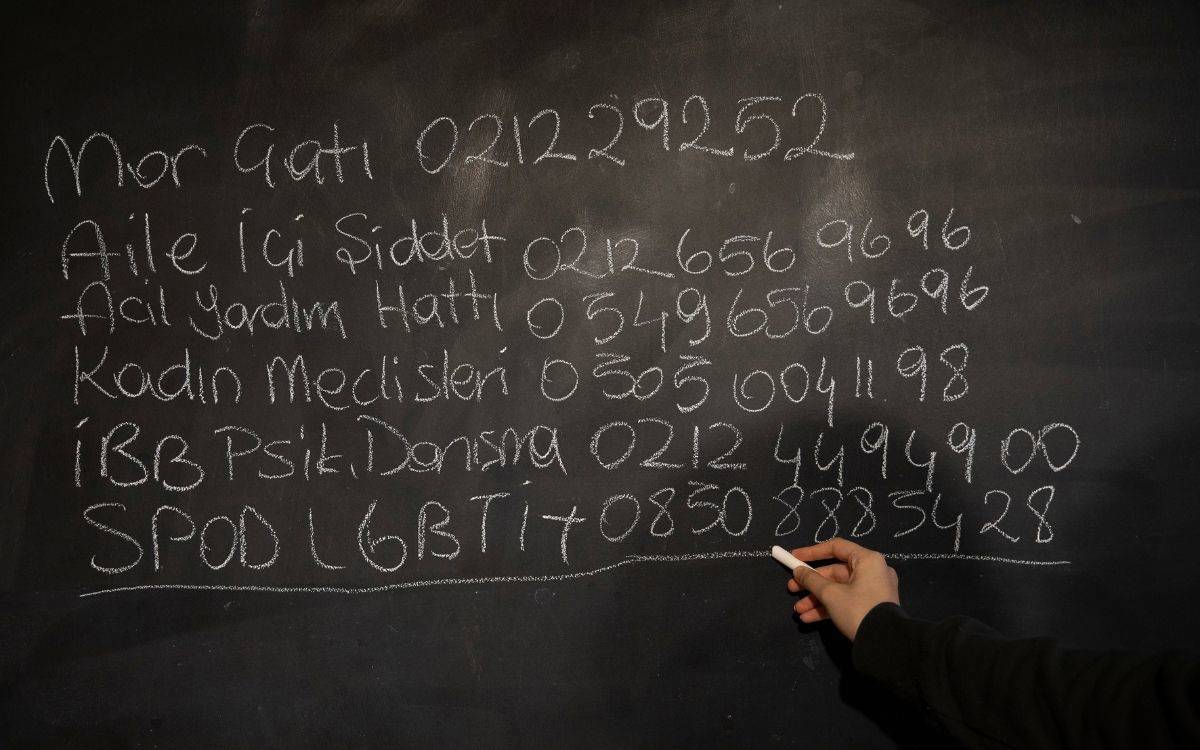 Mor Çatı 0212 2929252
Aile İçi Şiddet 0212 656 9696
Acil Yardım Hattı 0 549 656 9696
Kadın Meclisleri 0 505 004 11 98
İBB Psik. Danışma 0212 449 49 00
SPOD LGBTİ+ 0850 888 54 28